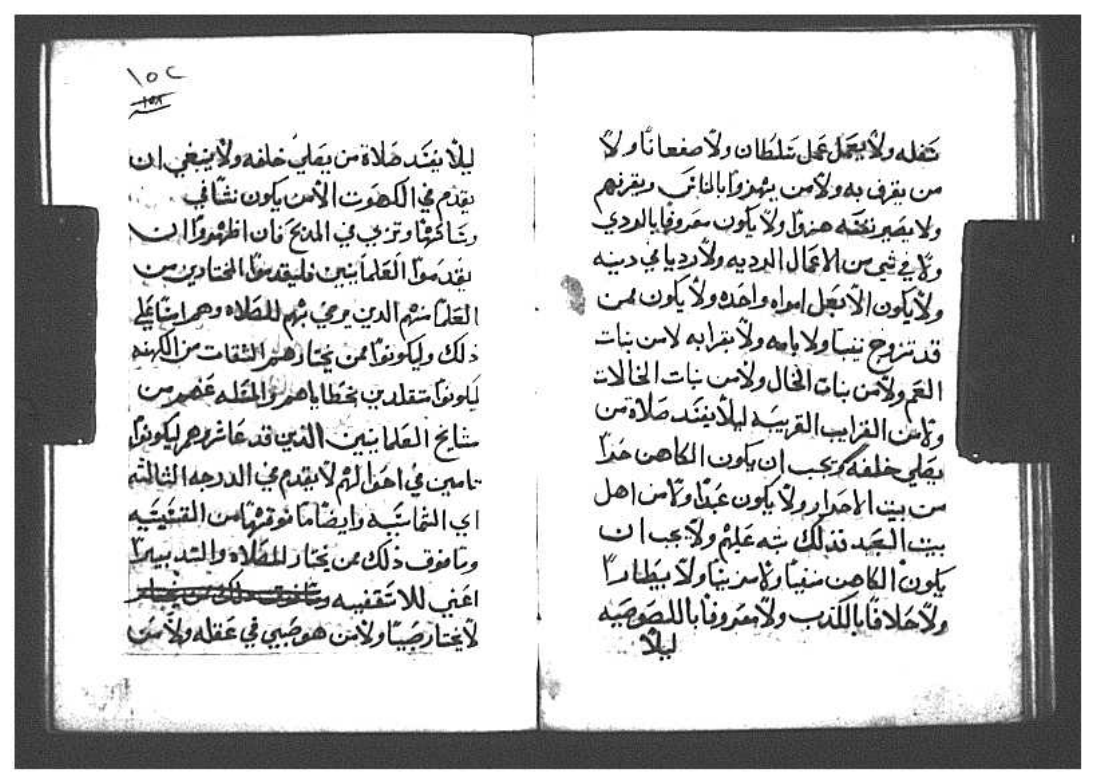 شغله ولا يعمل عمل سلطان ولا صفعانا ولا
من يعرف به ولا من يهزوا بالناس ويقرفهم
ولا يصير نفسه هزوا ولا يكون معروفا بالردي
ولا في شي من الاعمال الرديه ولا رديا في دينه
ولا يكون الا بعل امراه واحده ولا يكون ممن
قد تزوج ولا بامه ولا بقرابه لا من بنات
العم ولا من بنات الخال ولا من بنات الخالات
ولا من القرايب القريبه ليلا يفسد صلاة من
يصلي خلفه ويجب ان يكون الكاهن حرا
من بيت الاحرار ولا يكون عبدا ولا من اهل
بيت العبد فذلك شبه عليهم ولا يجب ان
يكون الكاهن مغنيا ولا مزينا ولا بيطارا
ولا حلافا بالكذب ولا معروفا باللصوصيه
ليلا
١٥٢
١٥٨
ليلا يفسد صلاة من يصلي خلفه ولا ينبغي ان
يقدم في الكهنوت الا من يكون نشا في
وتربي في المدبح فان اظهروا ان
يقدموا العلمانيين فليقدموا المختارين من
العلما منهم الذين يرضي بهم للصلاه وهم ايضا علي
ذلك وليكونوا ممن يختارهم الثقات من الكهنه
ليكونوا متقلدين بخطاياهم والمقله عنهم من
مشايخ العلمانيين الذين قد عاشروهم ليكونوا
تامين في احوالهم لا يقدم في الدرجه الثالثه
اي الشماسيه وايضا ما فوقها من القسيسيه
وما فوق ذلك ممن يختار للصلاه والتدبير
اعني للاسقفيه وما فوق ذلك من يختار
لا يختار صبيا ولا من هو صبي في عقله ولا من